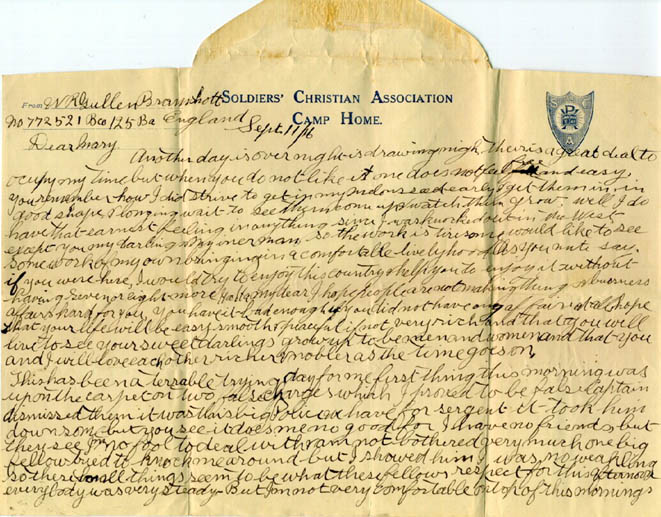 SOLDIERS' CHRISTIAN ASSOCIATION
CAMP HOME.
From W R Gullen Bramshott
No 772521 B Co 125 Ba England
Sept 11/16
Dear Mary
Another day is over night is drawing nigh there is a great deal to
occupy my time but when you do not like it one does not feel free and easy
you remember how I did strive to get in my seed early & get them in in
good shape & longing wait to see them come up & watch them grow. well I do
have that earnest feeling in anything since I was worked out in the West
except you my darling my inner man so the work is tiresome would like to see
some work of my own bringing in a comfortable lively as you may say.
if you were here, I would try to enjoy this country & help you to enjoy it without
having seven or eight more my dear, I hope people are not making things or business
affairs hard for you. You have it bad enough if you did not have any affairs at all hope
that your life will be easy smooth & peaceful if not very rich and that you will
live to see your sweet darlings grow up to be men and women and that you
and I will love each other richer & nobler as the time goes on
This has been a terrable trying day for me first thing this morning was
up on the carpet on two false charges which I proved to be fals Captain
dismissed them it was this big we have for sergent it took him
down some but you see it does me no good for I have no friends but
they see I'm no fool to deal with am not bothered very much one big
fellow tryed to knock me around but I showed him I was no weakling
so these small things seem to be what these fellows respect for this afternoon
everybody was very steady. But I'm not very comfortable on top of this mornings